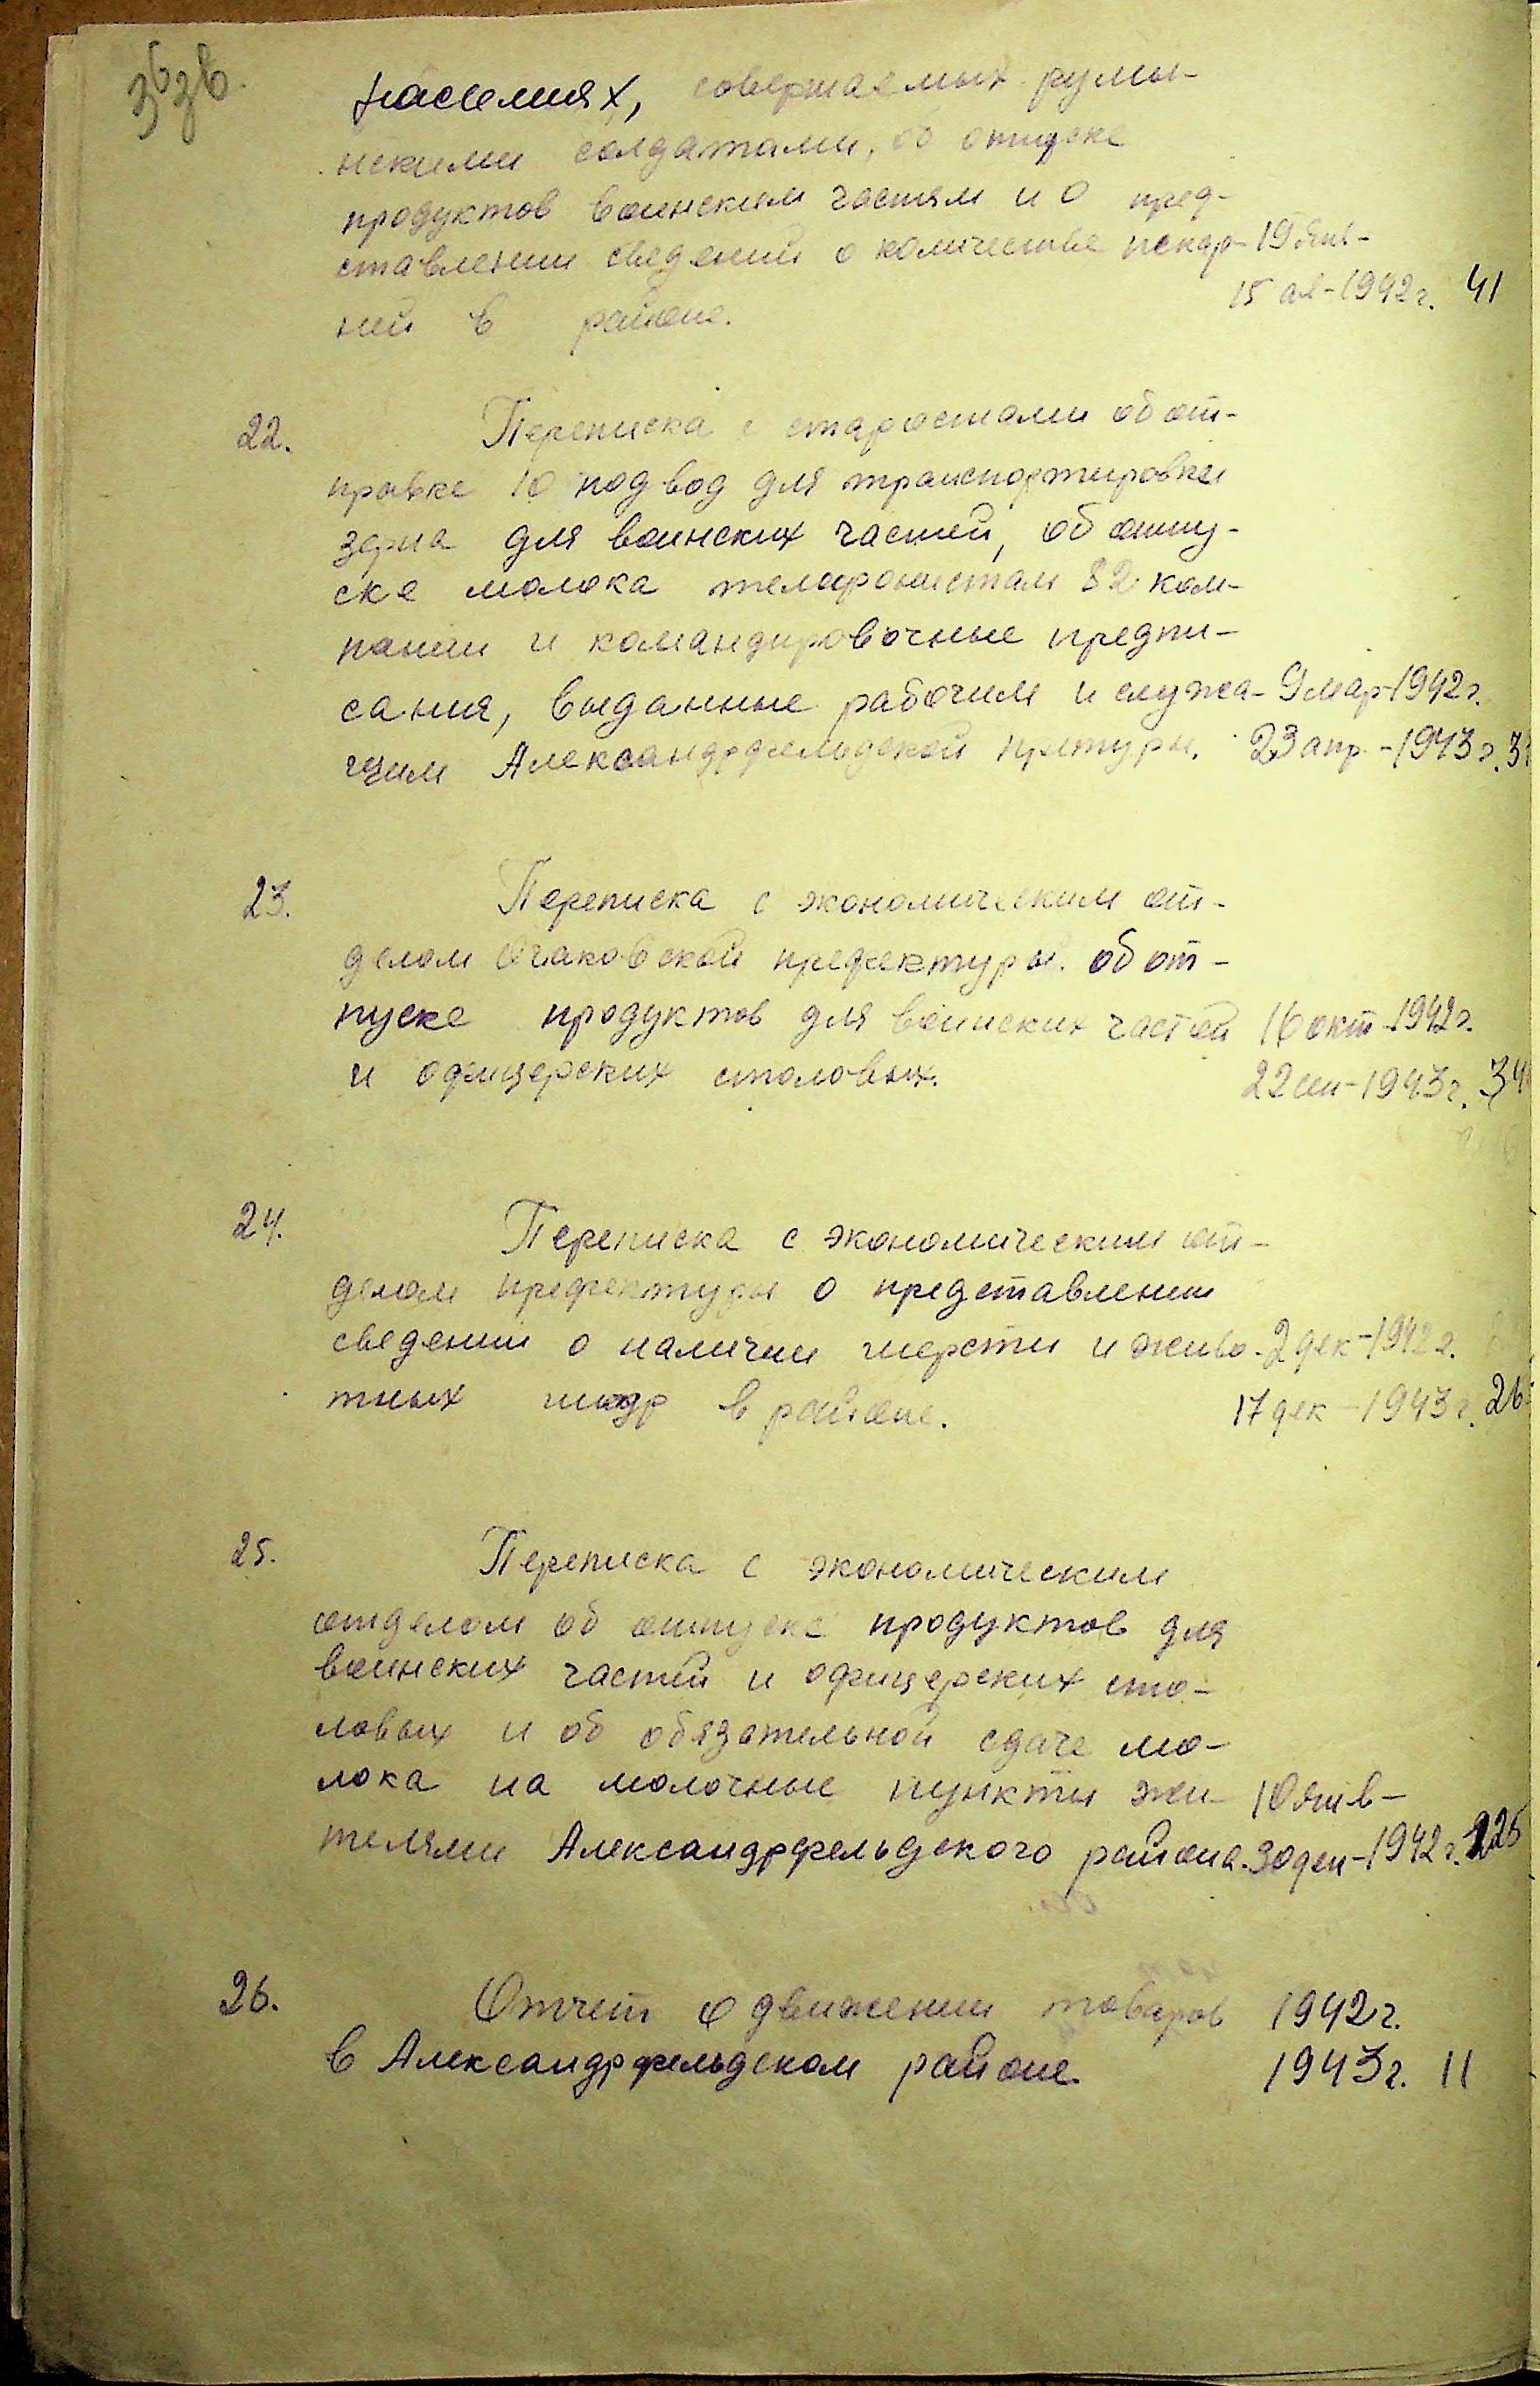 насилиях, совершаемых румы-
нскими солдатами, об отпуске
продуктов воинским частям и о пред-
ставлении сведений о количестве пекар- 19 янв-
ней в районе. 15 ав-1942 г. 41
22. Переписка с старостами об от-
правке 10 подвод для транспортировки
зерна для воинских частей, об отпу-
ске молока телефонистам 82 ком-
пании и командировочные предпи-
сания, выданные рабочим и служа- 9 мар-1942 г.
щим Александрфельдской претуры. 23 апр-1943 г.
23. Переписка с экономическим от-
делом Очаковской префектуры об от-
пуске продуктов для воинских частей 16 окт-1942 г.
и офицерских столовых. 22 сен-1943 г. 34
24. Переписка с экономическим от-
делом префектуры о представлении
сведений о наличии шерсти и живо- 2 дек-1942 г.
тных шкур в районе. 17 дек-1943 г. 26
25. Переписка с экономическим
отделом об отпуске продуктов для
воинских частей и офицерских сто-
ловых и об обязательной сдаче мо-
лока на молочные пункты жи- 10 янв-
телями Александрфельдского района. 30 дек-1942 г. 225
26. Отчет о движении товаров 1942 г.
в Александрфельдском районе. 1943 г. 11